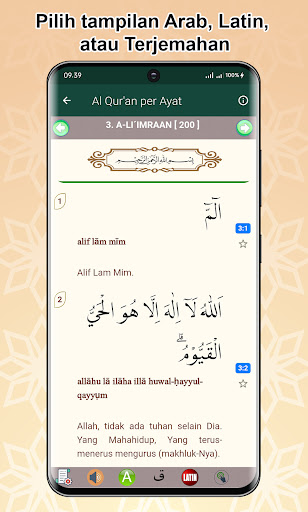 Pilih tampilan Arab, Latin,
atau Terjemahan
09.39
100%
Al Qur'an per Ayat
3. A-LI´IMRAAN [ 200 ]
بِسْمِ اللهِ الرَّحْمٰنِ الرَّحِيْمِ
1
الۤمّۤ
3:1
alif lām mīm
Alif Lam Mim.
2
اَللّٰهُ لَآ اِلٰهَ اِلَّا هُوَ الْحَيُّ
الْقَيُّوْمُۗ
3:2
allāhu lā ilāha huwal-ḥayyul-
qayyụm
Allah, tidak ada tuhan selain Dia.
Yang Mahahidup, Yang terus-
menerus mengurus (makhluk-Nya).
ق
LATIN